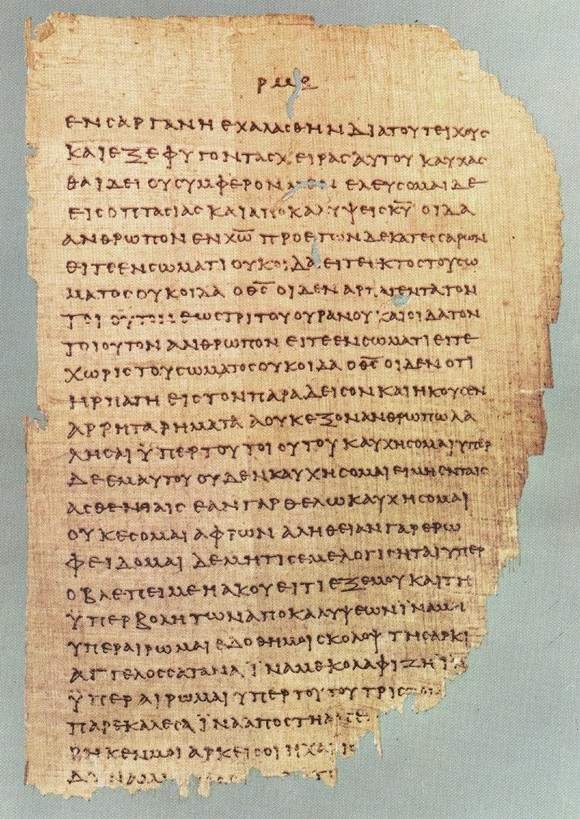 ΡΜΕ
ΕΝ ΣΑΡΓΑΝΗ ΕΧΑΛΑΣΘΗΝ ΔΙΑ ΤΟΥ ΤΕΙΧΟΥΣ
ΚΑΙ ΕΞΕΦΥΓΟΝ ΤΑΣ ΧΕΙΡΑΣ ΑΥΤΟΥ ΚΑΥΧΑΣ
ΘΑΙ ΔΕΙ ΟΥ ΣΥΜΦΕΡΟΝ ΕΛΕΥΣΟΜΑΙ ΔΕ
ΕΙΣ ΟΠΤΑΣΙΑΣ ΚΑΙ ΑΠΟΚΑΛΥΨΕΙΣ Κ̅Υ̅ ΟΙΔΑ
ΑΝΘΡΩΠΟΝ ΕΝ Χ̅Ω̅ ΠΡΟ ΕΤΩΝ ΔΕΚΑΤΕΣΣΑΡΩΝ
ΕΙΤΕ ΕΝ ΣΩΜΑΤΙ ΟΥΚ ΟΙΔΑ ΕΙΤΕ ΕΚΤΟΣ ΤΟΥ ΣΩ
ΜΑΤΟΣ ΟΥΚ ΟΙΔΑ Ο Θ̅Σ̅ ΟΙΔΕΝ ΑΡΠΑΓΕΝΤΑ ΤΟΝ
ΤΟΙΟΥΤΟΝ ΕΩΣ ΤΡΙΤΟΥ ΟΥΡΑΝΟΥ ΚΑΙ ΟΙΔΑ ΤΟΝ
ΤΟΙΟΥΤΟΝ ΑΝΘΡΩΠΟΝ ΕΙΤΕ ΕΝ ΣΩΜΑΤΙ ΕΙΤΕ
ΧΩΡΙΣ ΤΟΥ ΣΩΜΑΤΟΣ ΟΥΚ ΟΙΔΑ Ο Θ̅Σ̅ ΟΙΔΕΝ ΟΤΙ
ΗΡΠΑΓΗ ΕΙΣ ΤΟΝ ΠΑΡΑΔΕΙΣΟΝ ΚΑΙ ΗΚΟΥΣΕΝ
ΑΡΡΗΤΑ ΡΗΜΑΤΑ Α ΟΥΚ ΕΞΟΝ ΑΝΘΡΩΠΩ ΛΑ
ΛΗΣΑΙ ΫΠΕΡ ΤΟΥ ΤΟΙΟΥΤΟΥ ΚΑΥΧΗΣΟΜΑΙ ΥΠΕΡ
ΔΕ ΕΜΑΥΤΟΥ ΟΥΔΕΝ ΚΑΥΧΗΣΟΜΑΙ ΕΙ ΜΗ ΕΝ ΤΑΙΣ
ΑΣΘΕΝΕΙΑΙΣ ΕΑΝ ΓΑΡ ΘΕΛΩ ΚΑΥΧΗΣΟΜΑΙ
ΟΥΚ ΕΣΟΜΑΙ ΑΦΡΩΝ ΑΛΗΘΕΙΑΝ ΓΑΡ ΕΡΩ
ΦΕΙΔΟΜΑΙ ΔΕ ΜΗ ΤΙΣ ΕΜΕ ΛΟΓΙΣΗΤΑΙ ΥΠΕΡ
Ο ΒΛΕΠΕΙ ΜΕ Η ΑΚΟΥΕΙ ΤΙ ΕΞ ΕΜΟΥ ΚΑΙ ΤΗ
ΫΠΕΡΒΟΛΗ ΤΩΝ ΑΠΟΚΑΛΥΨΕΩΝ ΪΝΑ ΜΗ
ΥΠΕΡΑΙΡΩΜΑΙ ΕΔΟΘΗ ΜΟΙ ΣΚΟΛΟΨ ΤΗ ΣΑΡΚΙ
ΑΓΓΕΛΟΣ ΣΑΤΑΝΑ ΪΝΑ ΜΕ ΚΟΛΑΦΙΖΗ ΪΝΑ
ΫΠΕΡΑΙΡΩΜΑΙ ΥΠΕΡ ΤΟΥΤΟΥ ΤΡΙΣ
ΠΑΡΕΚΑΛΕΣΑ ΪΝΑ ΑΠΟΣΤΗ Α
ΡΗΚΕΝ ΜΟΙ ΑΡΚΕΙ ΣΟΙ Η ΧΑΡΙΣ
ΔΥΝΑΜΙΣ